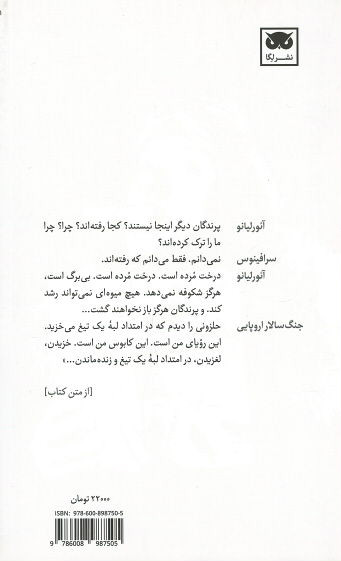 نشر لگا
آئورلیانو پرندگان دیگر اینجا نیستند؟ کجا رفته‌اند؟ چرا؟ چرا
ما را ترک کرده‌اند؟
سرافینوس نمی‌دانم. فقط می‌دانم که رفته‌اند.
آئورلیانو درخت مُرده است. درخت مُرده است. بی‌برگ است،
هرگز شکوفه نمی‌دهد. هیچ میوه‌ای نمی‌تواند رشد
کند. و پرندگان هرگز باز نخواهند گشت...
جنگ‌سالار اروپایی حلزونی را دیدم که در امتداد لبهٔ یک تیغ می‌خزید.
این رؤیای من است. این کابوس من است. خزیدن،
لغزیدن، در امتداد لبهٔ یک تیغ و زنده‌ماندن...»
[از متن کتاب]
۲۲۰۰۰ تومان
ISBN: 978-600-898750-5
9 786008 987505